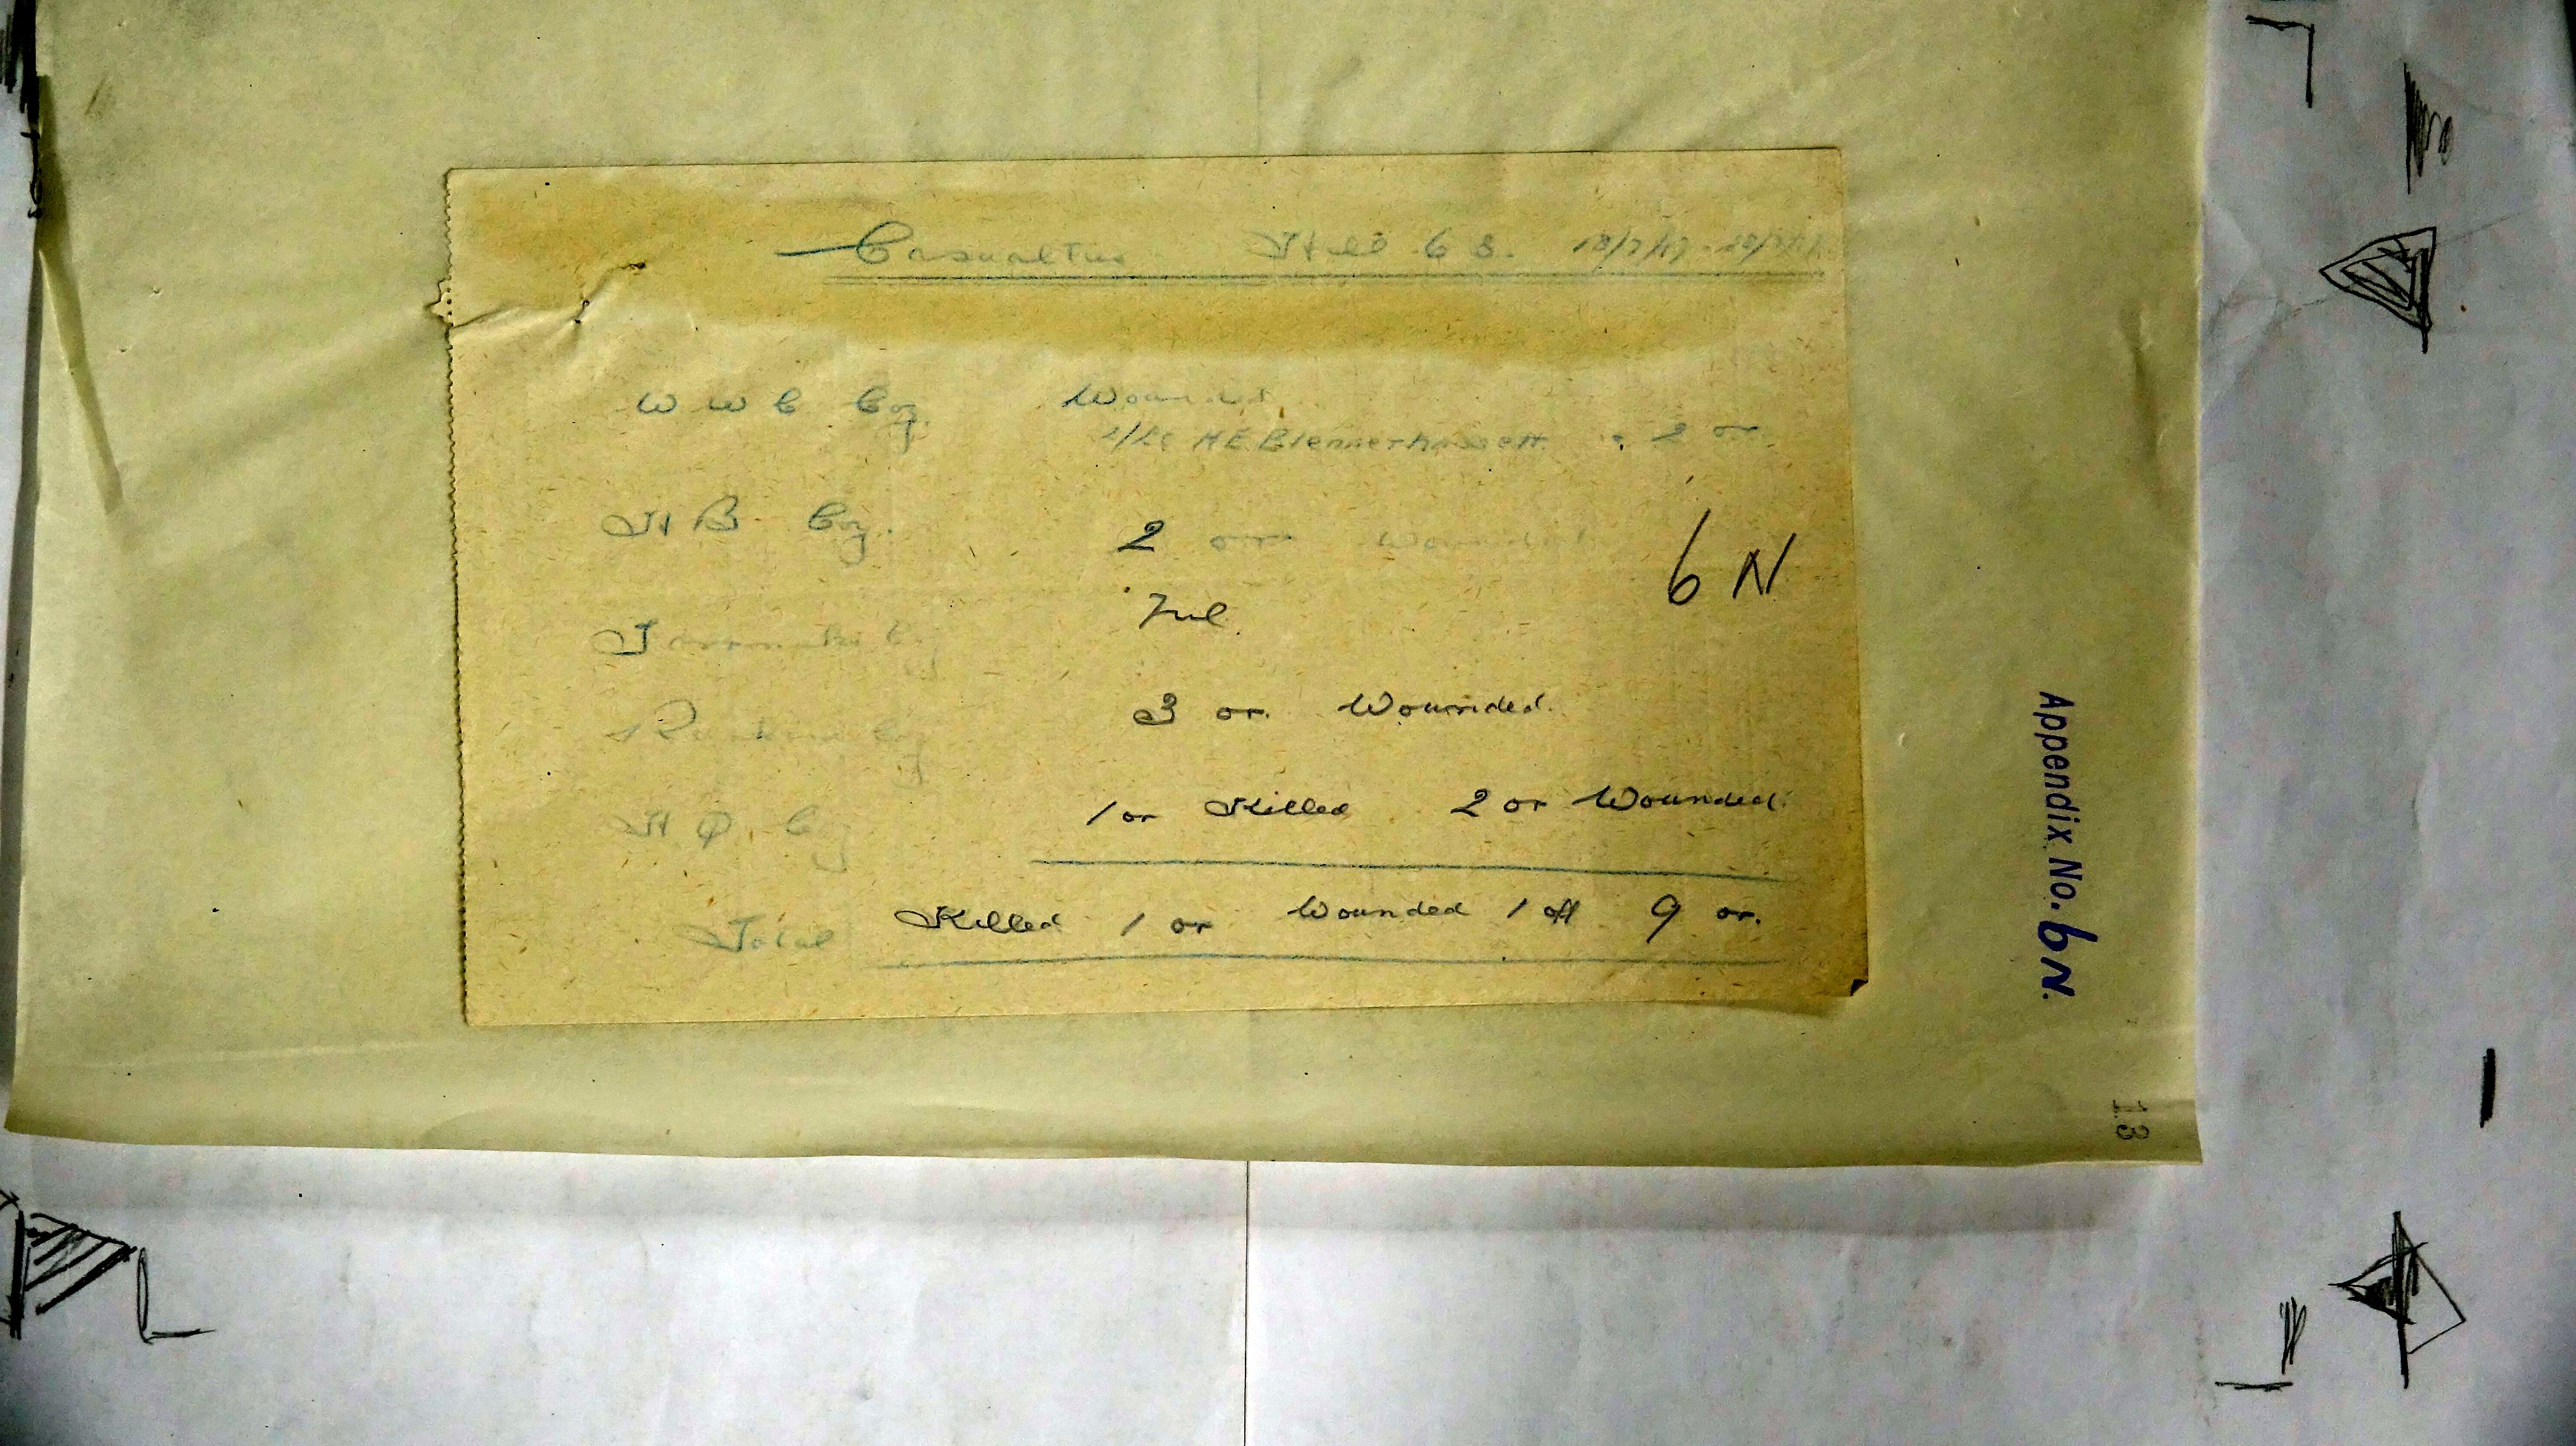 Casualties Hill 63. 18/7/17
W W C Coy. Wounded
2/Lt H E Blennerhassett + 2 or
H B Coy. 2 or Wounded
Taranaki Coy Nil.
Ruahine Coy 3 or. Wounded.
H Q. Coy 1 or Killed 2 or Wounded.
Total Killed 1 or Wounded 1 off 9 or.
6 N
Appendix No. 6 N.
13